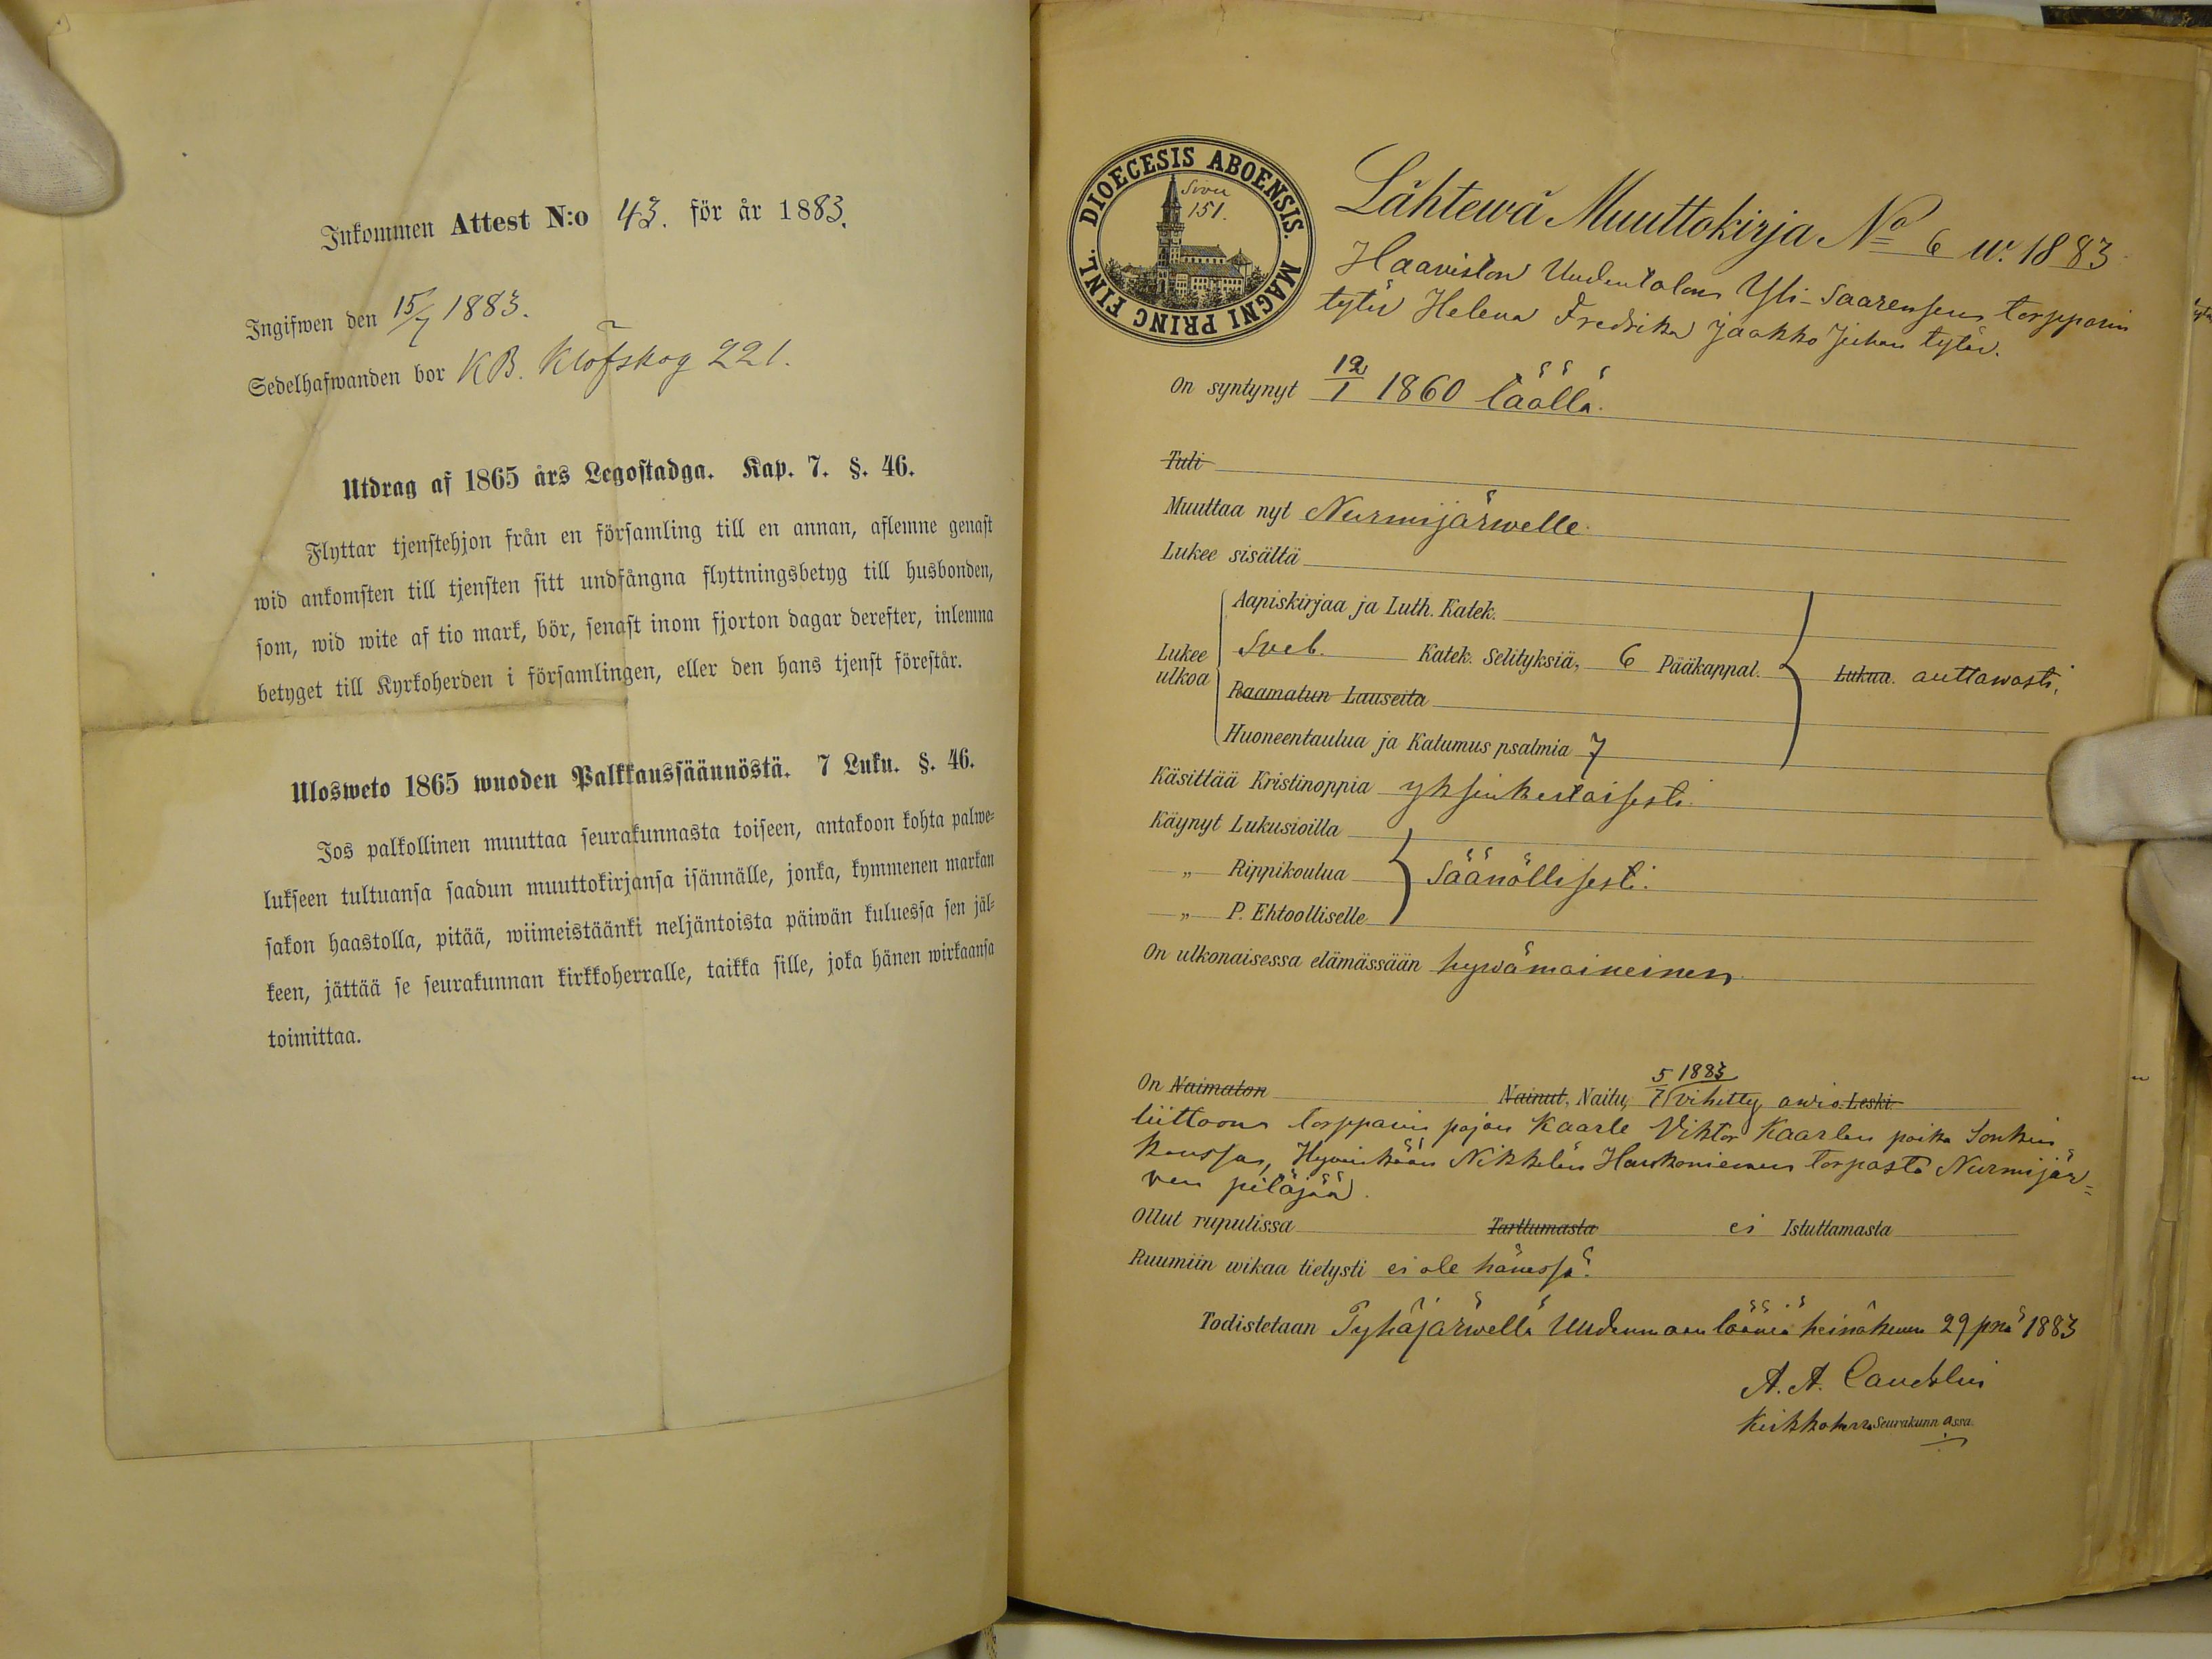 Inkommen Attest N:o 43. för år 1883.
Ingifwen den 15/7 1883.
Sedelhafwanden bor KB. Klöfskog 221.
Utdrag af 1865 års Legostadga. Kap. 7. §. 46.
Flyttar tjenstehjon från en församling till en annan, aflemne genast
wid ankomsten till tjensten sitt undfångna flyttningsbetyg till husbonden,
som, wid wite af tio mark, bör, senast inom fjorton dagar derefter, inlemna
betyget till Kyrkoherden i församlingen, eller den hans tjenst förestår.
Ulosweto 1865 wuoden Palkkaussäännöstä. 7 Luku. §. 46.
Jos palkollinen muuttaa seurakunnasta toiseen, antakoon kohta palwe-
lukseen tultuansa saadun muuttokirjansa isännälle, jonka, kymmenen markan
sakon haastolla, pitää, wiimeistäänki neljäntoista päiwän kuluessa sen jäl-
keen, jättää se seurakunnan kirkkoherralle, taikka sille, joka hänen wirkaansa
toimittaa.
DIOECESIS ABOENSIS. MAGNI PRINC FINL.
Sivu
151.
Lähtewä Muuttokirja No 6 w. 1883
Haaviston Uudentalon Yli-Saarensen torpparin
tytär Helena Fredrika Jaakko Juhan tytär.
On syntynyt 12/1 1860 täällä.
Tuli
Muuttaa nyt Nurmijärwelle.
Lukee sisältä
Aapiskirjaa ja Luth. Katek.
Lukee ulkoa
Sveb. Katek. Selityksiä, 6 Pääkappal. Lukua. auttawasti.
Raamatun Lauseita
Huoneentaulua ja Katumus psalmia 7
Käsittää Kristinoppia yksinkertaisesti.
Käynyt Lukusioilla
„ Rippikoulua Säänöllisesti.
„ P. Ehtoolliselle
On ulkonaisessa elämässään hywämaineinen
On Naimaton Nainut, Naitu, 5/7 1883 vihitty avio Leski
liittoon torpparin pojan Kaarle Viktor Kaarlen poika
kanssa, Hyvinkään Nikkilän Haukoniemen torpasta Nurmijär=
ven pitäjää.
Ollut rupulissa Tarttumasta ei Istuttamasta
Ruumiin wikaa tietysti ei ole hänessä.
Todistetaan Pyhäjärwellä Uudenmaan lääniä heinäkuun 29 pnä 1883
A. A.
Kirkkoherra Seurakunnassa.